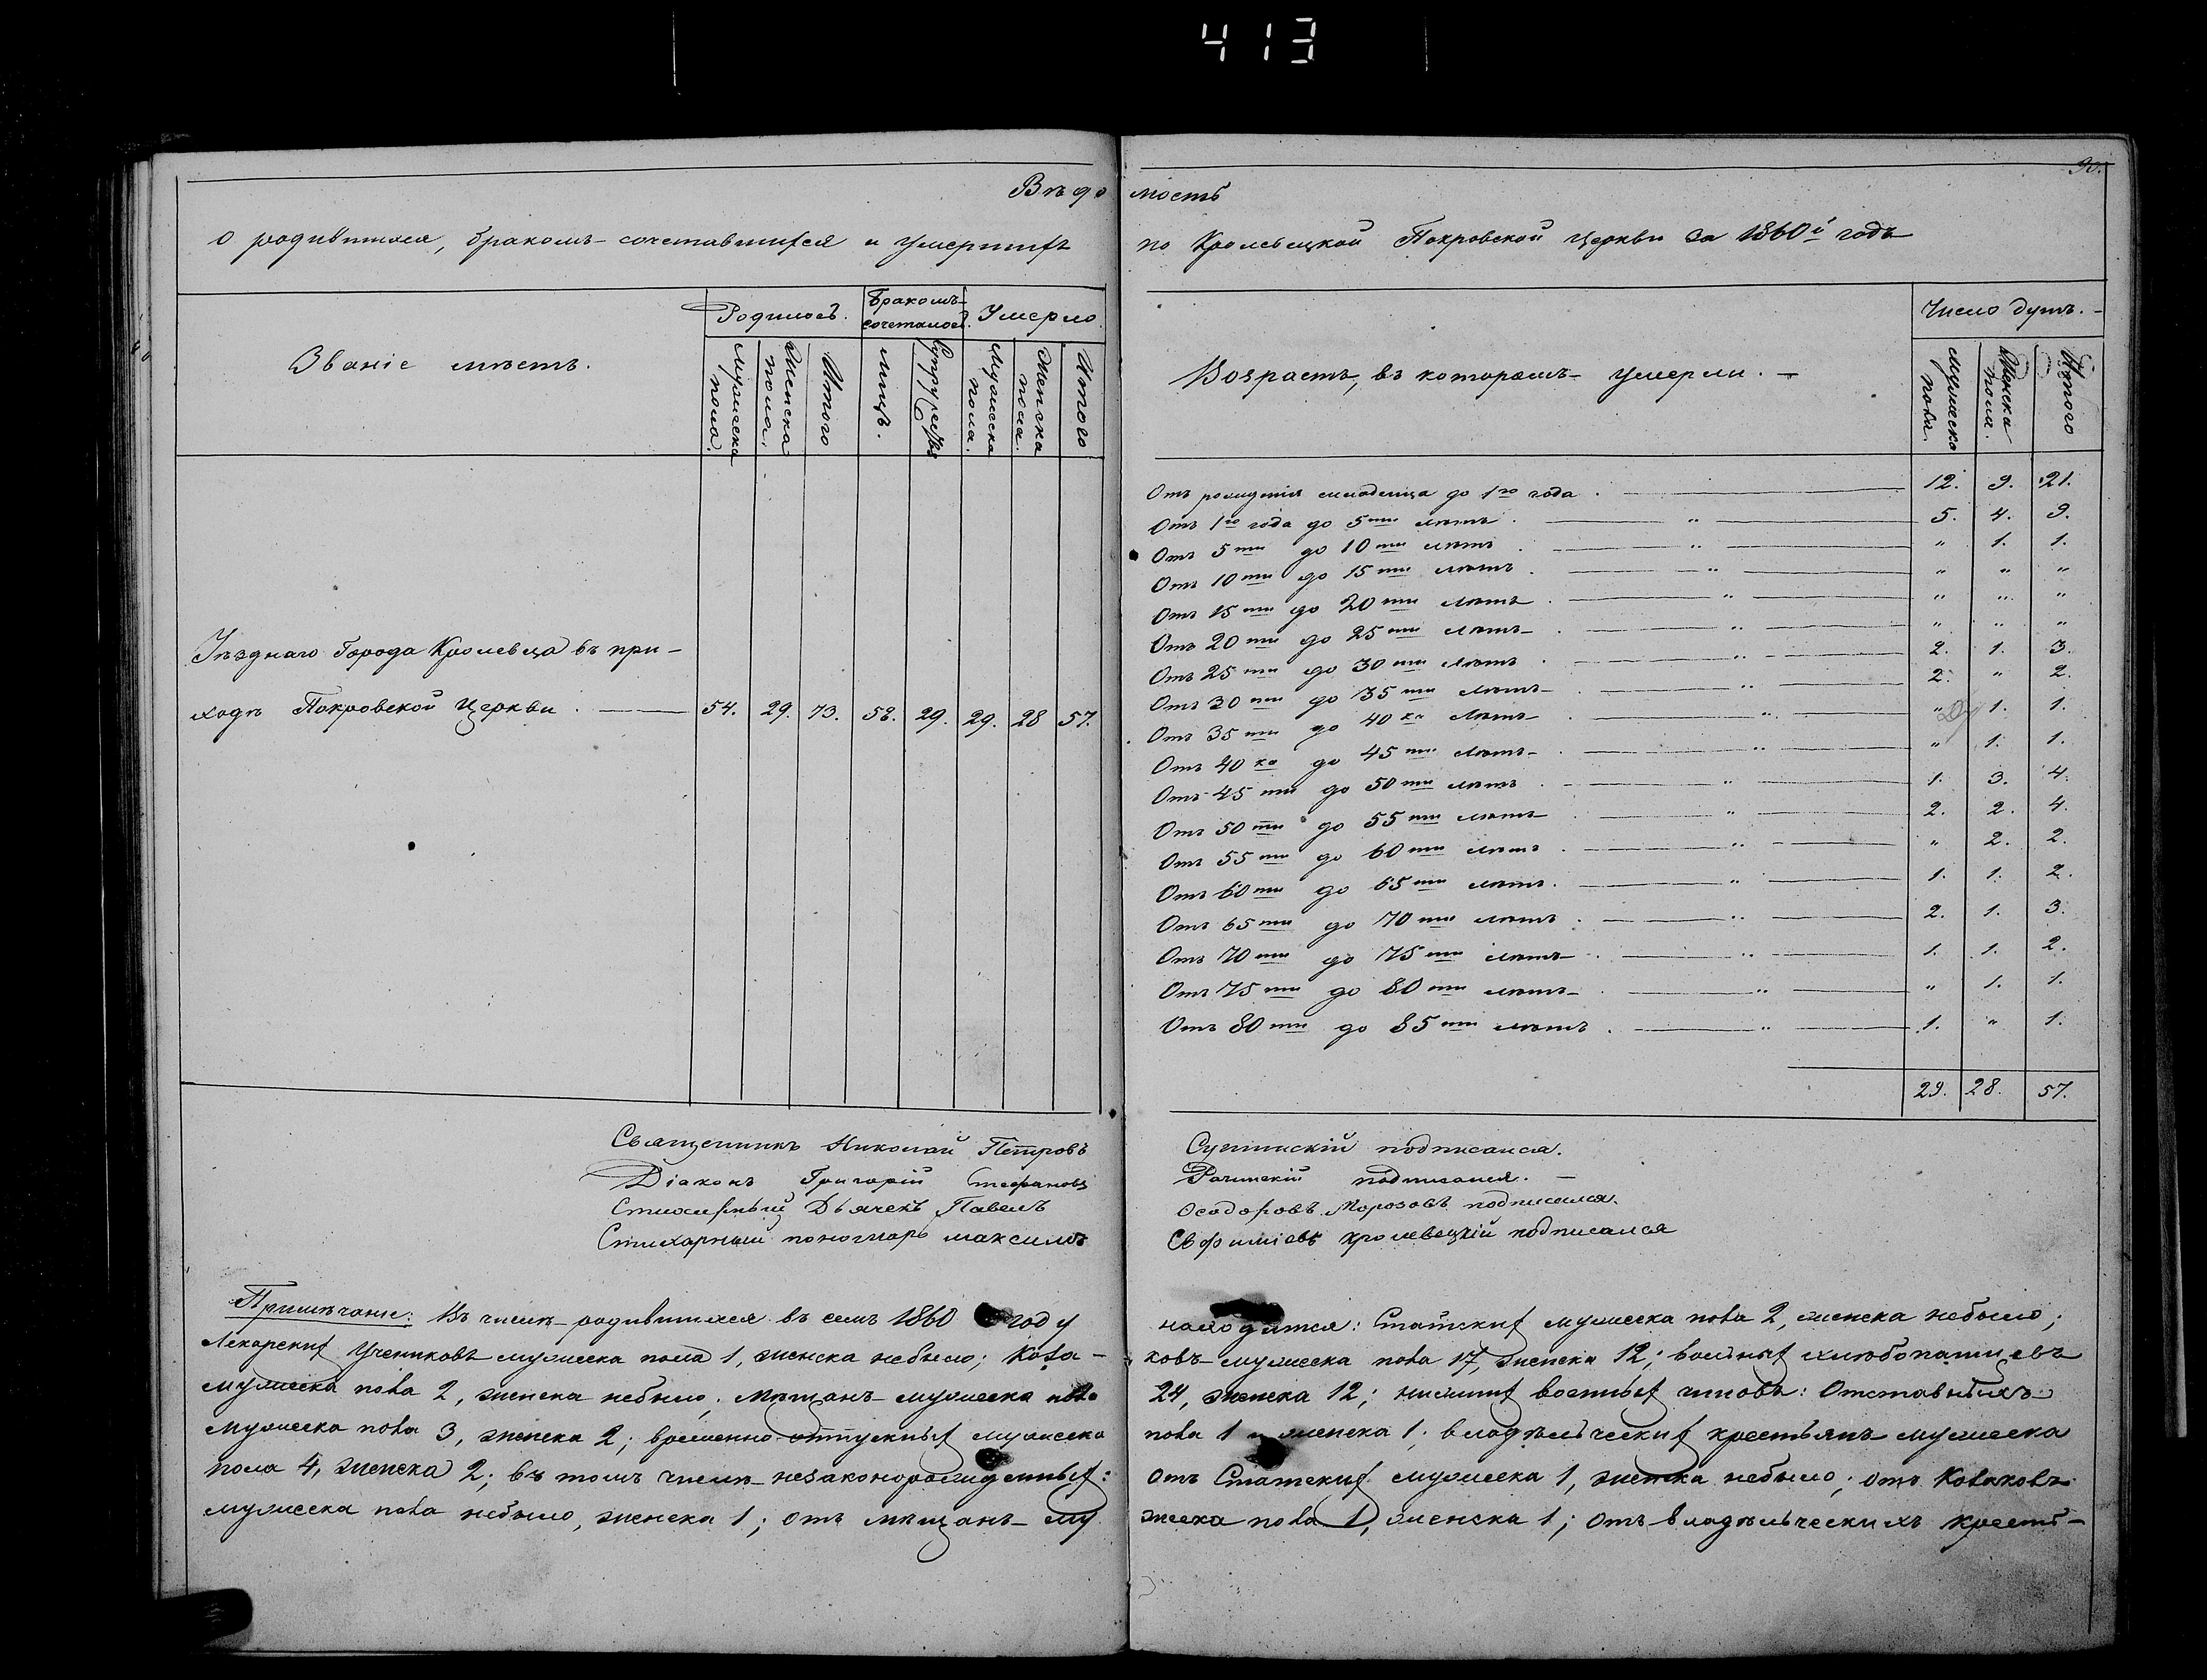 413
90.
Вѣдо мость
о родившихся, бракомъ сочетавшихся и умершихъ по Кролевецкой Покровской Церкви за 1860й годъ
Званіе мѣстъ.
Родилось. Бракомъ сочеталось. Умерло.
Мужеска пола. Женска пола. Итого Лицъ. Супружествъ Мужеска пола. Женска пола. Итого
Уѣзднаго Города Кролевца въ при-
ходѣ Покровской Церкви . 54. 29. 73. 58. 29. 29. 28 57.
Возрастъ, въ которомъ умерли. Число душъ.
Мужеска пола. Женска пола. Итого
Отъ рожденія младенца до 1го года . 12. 9. 21.
Отъ 1го года до 5ти лѣтъ . „ 5. 4. 9.
Отъ 5ти до 10ти лѣтъ . „ „ 1. 1.
Отъ 10ти до 15ти лѣтъ . „ „ „ „
Отъ 15ти до 20ти лѣтъ . „ „ „ „
Отъ 20ти до 25ти лѣтъ . „ „ „ „
Отъ 25ти до 30ти лѣтъ . „ 2. 1. 3.
Отъ 30ти до 35ти лѣтъ . „ 2. „ 2.
Отъ 35ти до 40ка лѣтъ . „ „ 1. 1.
Отъ 40ка до 45ти лѣтъ . „ „ 1. 1.
Отъ 45ти до 50ти лѣтъ . „ 1. 3. 4.
Отъ 50ти до 55ти лѣтъ . „ 2. 2. 4.
Отъ 55ти до 60ти лѣтъ . „ „ 2. 2.
Отъ 60ти до 65ти лѣтъ . „ 1. 1. 2.
Отъ 65ти до 70ти лѣтъ . „ 2. 1. 3.
Отъ 70ти до 75ти лѣтъ . „ 1. 1. 2.
Отъ 75ти до 80ти лѣтъ . „ „ 1. 1.
Отъ 80ти до 85ти лѣтъ . „ 1. „ 1.
29. 28. 57.
Священникъ Николай Петровъ подписался.
Діаконъ Григорій Стефановъ подписался.
Стихарный Дьячекъ Павелъ Ѳеодоровъ Морозовъ подписался.
Стихарный пономарь Максимъ Евфиміевъ Кролевецкій подписался
Примѣчаніе: Въ числѣ родившихся въ семъ 1860 году находятся: Статскихъ мужеска пола 2, женска небыло;
Лекарскихъ Учениковъ мужеска пола 1, женска небыло; Коза-ковъ мужеска пола 17, женска 12; военныхъ хлѣбопашцевъ
мужеска пола 2, женска небыло; мѣщанъ мужеска пола 24, женска 12; нижнихъ военныхъ чиновъ: Отставныхъ
мужеска пола 3, женска 2; временно отпускныхъ мужеска пола 1 и женска 1; владѣльческихъ крестьянъ мужеска
пола 4, женска 2; въ томъ числѣ незаконорожденныхъ: отъ Статскихъ мужеска 1, женска небыло; отъ Козаковъ
мужеска пола небыло, женска 1; отъ мѣщанъ му жеска пола 1, женска 1; отъ владѣльческихъ кресть-